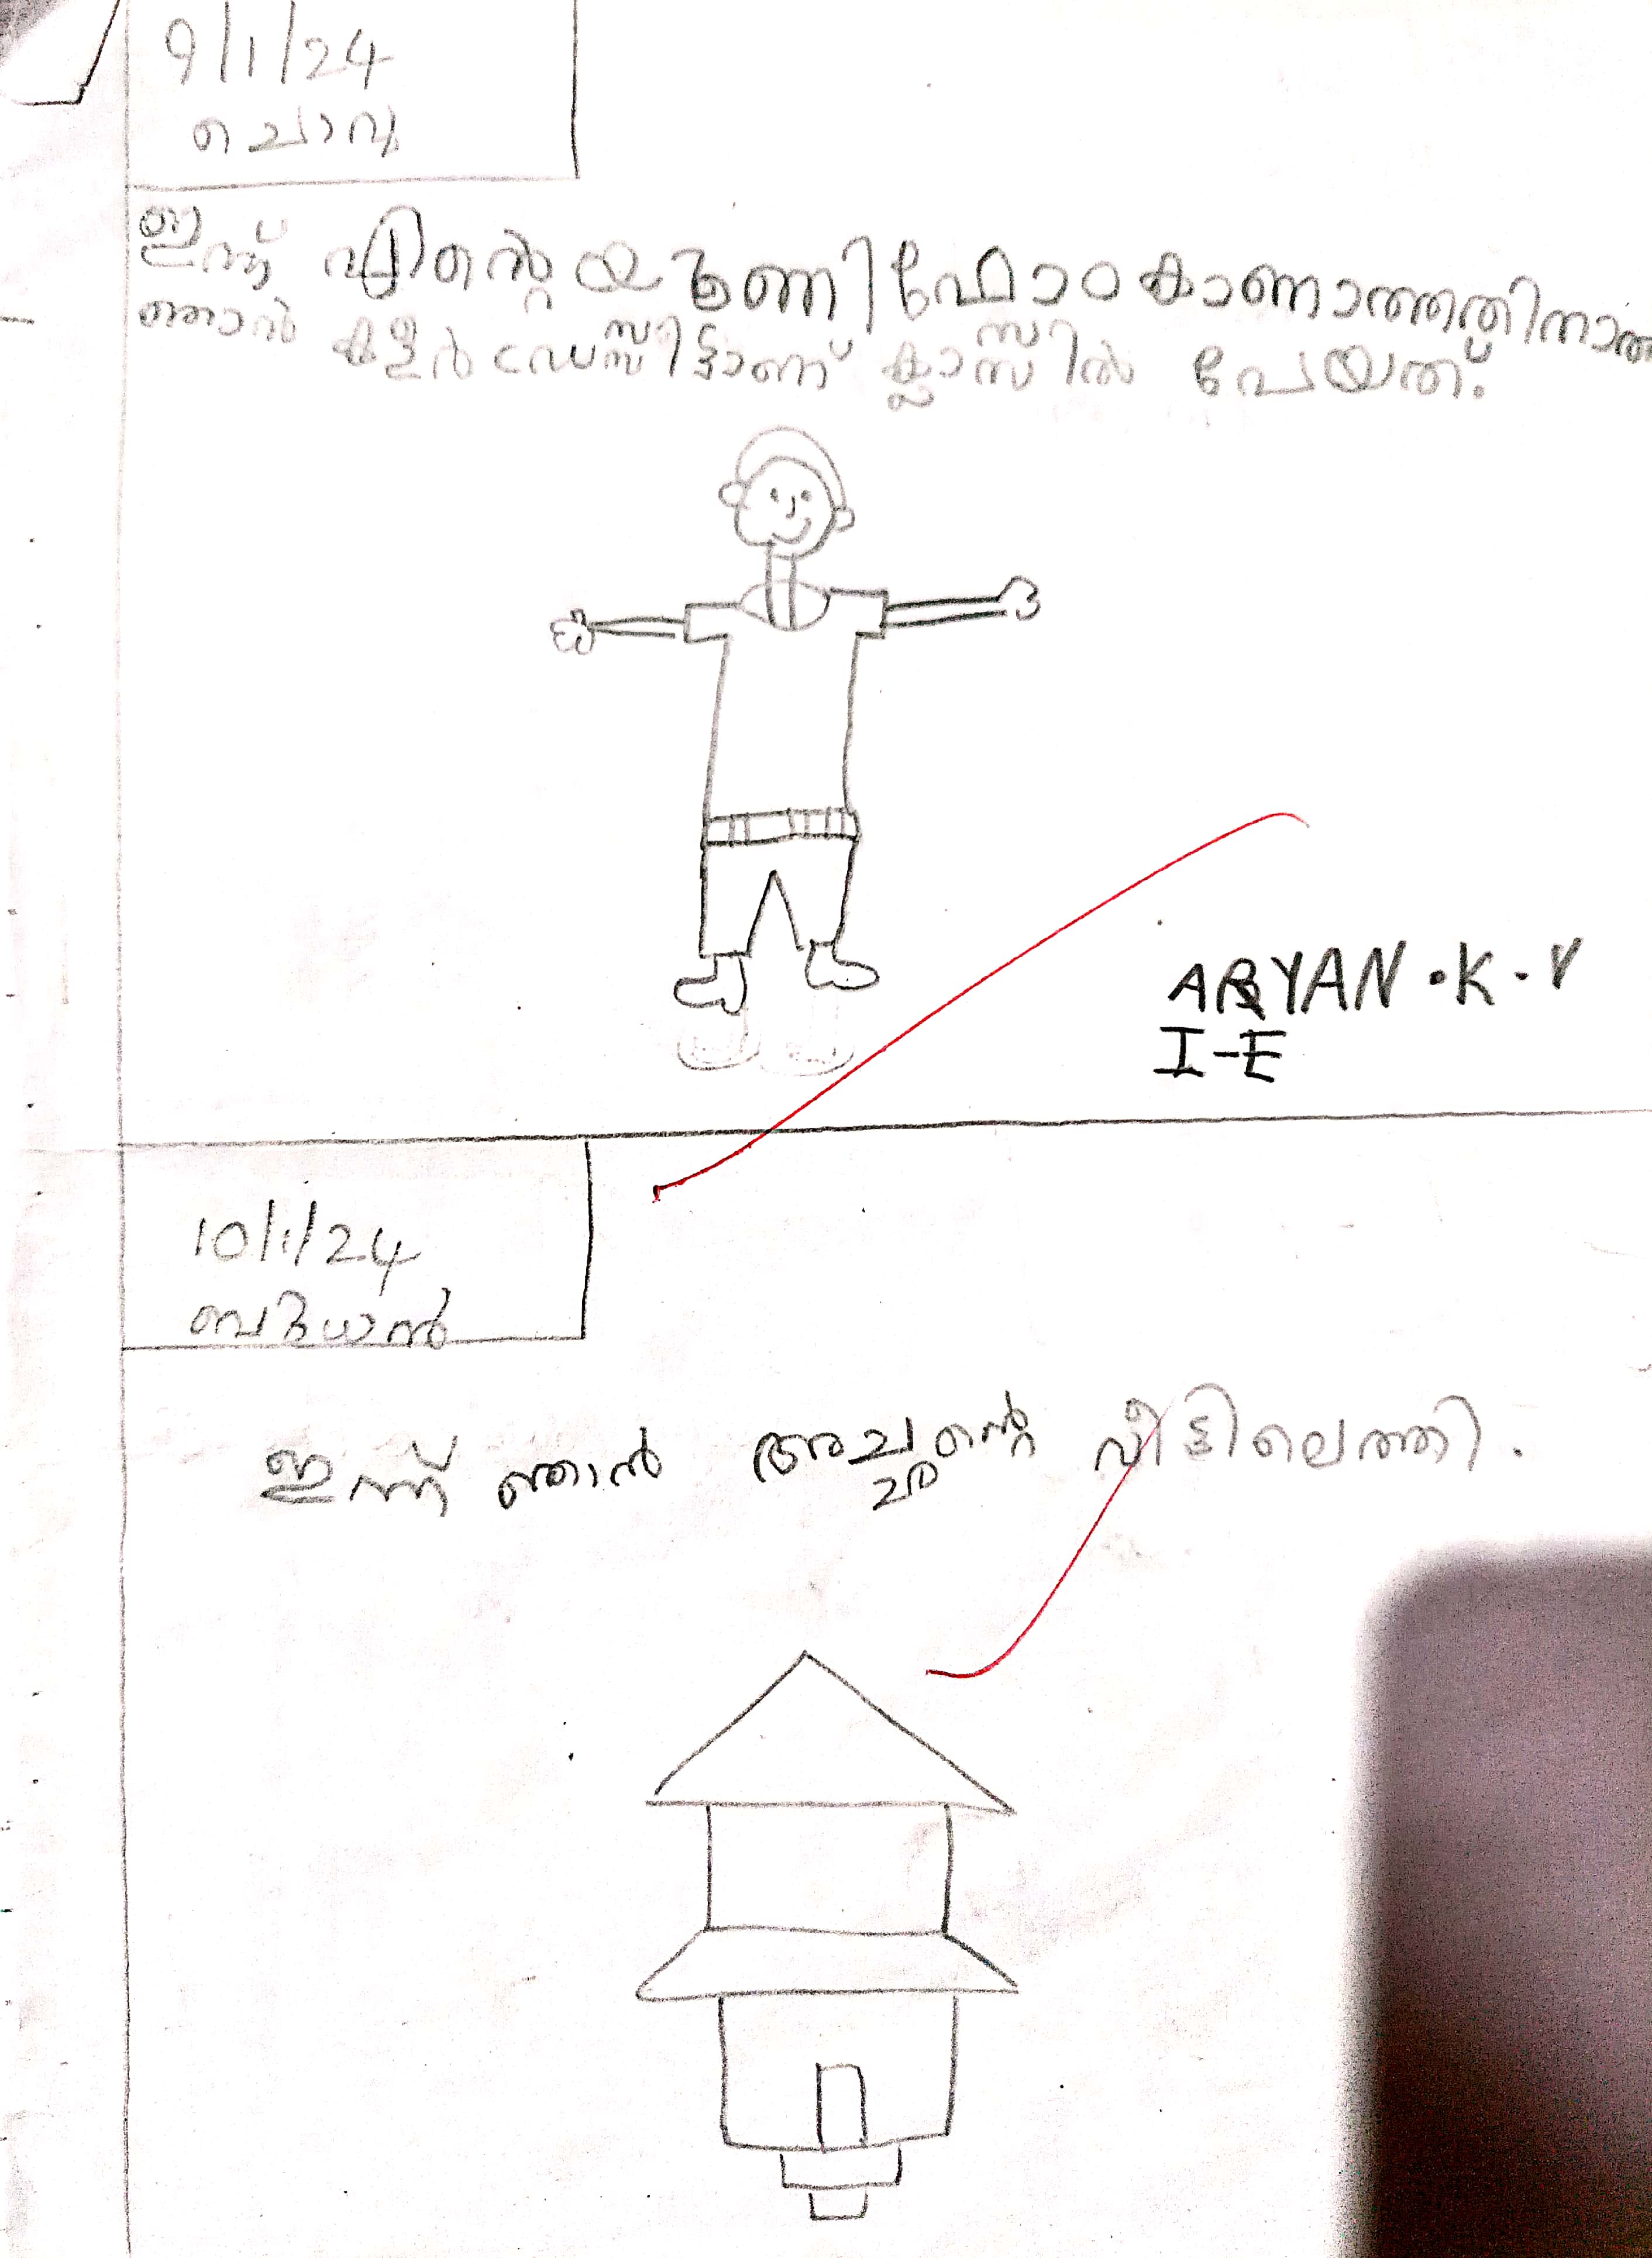 9/1/24
ചൊവ്വ
ഇന്ന് എന്റെ യൂണിഫോം കാണാത്തതിനാൽ
ഞാൻ കളർ ഡ്രസ്സിട്ടാണ് ക്ലാസ്സിൽ പേയത്.
ARYAN.K.V
I-E
10/1/24
ബുധൻ
ഇന്ന് ഞാൻ അച്ഛന്റെ വീട്ടിലെത്തി.